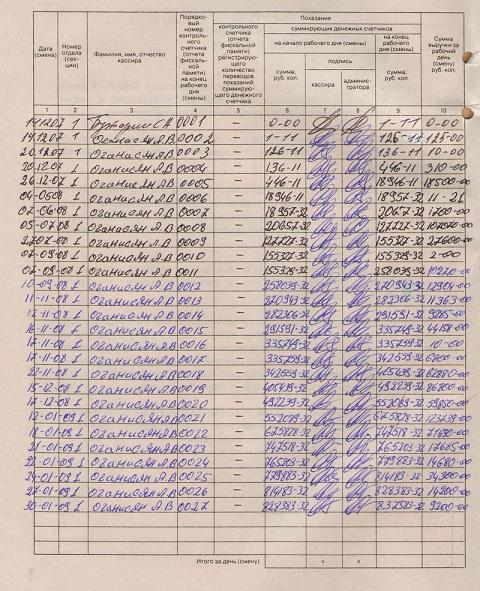 Дата (смена)
Номер отдела (секции)
Фамилия, имя, отчество кассира
Порядковый номер контрольного счетчика (отчета фискальной памяти) на конец рабочего дня (смены)
контрольного счетчика (отчета фискальной памяти) регистрирующего количество переводов показаний суммирующего денежного счетчика
Показания
суммирующих денежных счетчиков
на начало рабочего дня (смены)
сумма, руб. коп.
подпись
кассира
администратора
на конец рабочего дня (смены)
сумма, руб. коп.
Сумма выручки за рабочий день (смену) руб. коп.
1 2 3 4 5 6 7 8 9 10
14.12.07 1 0001 – 0-00 1-11 0-00
14.12.07 1 Оганисян А В 0002 – 1-11 126-11 125-00
20.12.07 1 Оганисян А В 0003 – 126-11 136-11 10-00
20.12.07 1 Оганисян А В 0004 – 136-11 446-11 310-00
26.12.07 1 Оганисян А В 0005 – 446-11 18946-11 18500-00
1 Оганисян А В 0006 – 18946-11 18957-32 11-21
07-06-08 1 Оганисян А В 0007 – 18957-32 20657-32 1700-00
05-07-08 1 Оганисян А В 0008 – 20657-32 127727-32 107070-00
1 Оганисян А В 0009 – 127727-32 155327-32 27600-00
07-09-08 1 Оганисян А В 0010 – 155327-32 155329-32 2-00
07-09-08 1 Оганисян А В 0011 – 155329-32
10-09-08 1 Оганисян А В 0012 – 270943-32 12904-00
11-11-08 1 Оганисян А В 0013 – 270943-32 282306-32 11363-00
1 Оганисян А В 0014 – 282306-32 291591-32 9285-00
16-11-08 1 Оганисян А В 0015 – 291591-32 335749-32 44158-00
17-11-08 1 Оганисян А В 0016 – 335749-32 335759-32 10-00
17-11-08 1 Оганисян А В 0017 – 335759-32 342559-32 6800-00
22-11-08 1 Оганисян А В 0018 – 342559-32 405439-32 62880-00
15-12-08 1 Оганисян А В 0019 – 405439-32 492239-32 86800-00
17-12-08 1 Оганисян А В 0020 – 492239-32 552089-32 59850-00
12-01-09 1 Оганисян А В 0021 – 552089-32 675828-32 123739-00
18-01-09 1 Оганисян А В 0022 – 675828-32 747518-32 71690-00
21-01-09 1 Оганисян А В 0023 – 747518-32 765203-32 17685-00
22-01-09 1 Оганисян А В 0024 – 765203-32 779883-32 14680-00
24-01-09 1 Оганисян А В 0025 – 779883-32 814183-32 34300-00
27-01-09 1 Оганисян А В 0026 – 814183-32 828383-32 14200-00
30-01-09 1 Оганисян А В 0027 – 828383-32 837583-32 9200-00
Итого за день (смену) х х